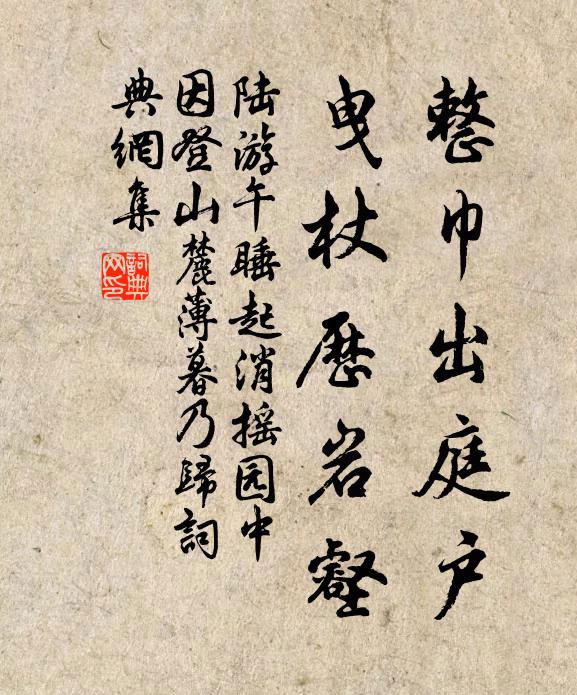 整巾出庭户
曳杖歷岩壑
陆游午睡起消摇园中
因登山麓薄暮乃歸詞
典網集
詞典网印